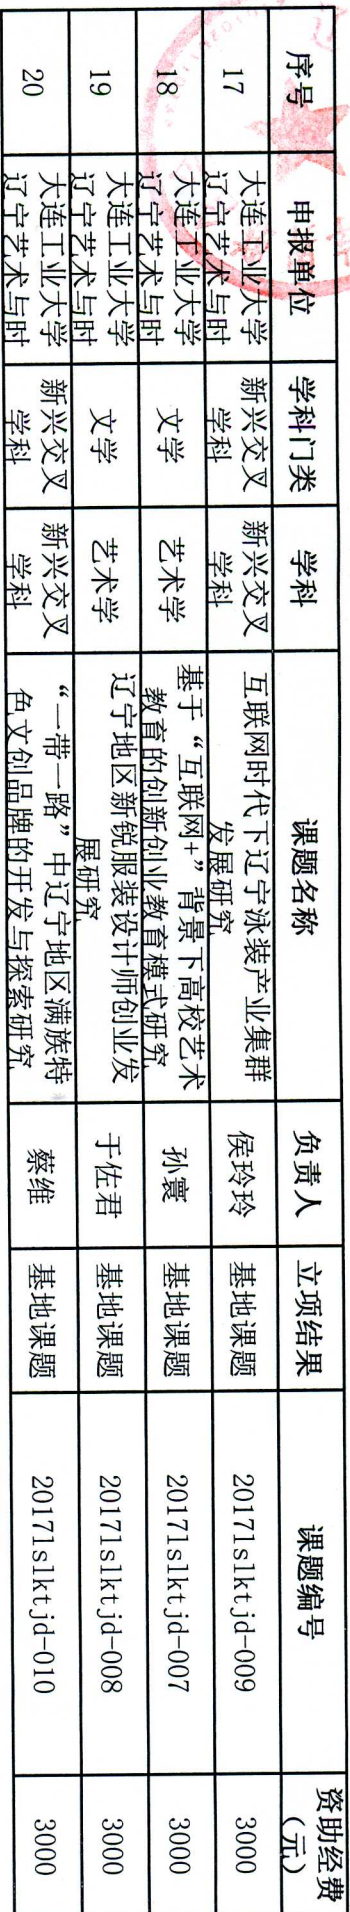 序号 申报单位 学科门类 学科 课题名称 负责人 立项结果 课题编号 资助经费
(元)
17 大连工业大学
辽宁艺术与时 新兴交叉
学科 新兴交叉
学科 互联网时代下辽宁泳装产业集群
发展研究 侯玲玲 基地课题 2017lslktjd-009 3000
18 大连工业大学
辽宁艺术与时 文学 艺术学 基于“互联网+”背景下高校艺术
教育的创新创业教育模式研究 孙寰 基地课题 2017lslktjd-007 3000
19 大连工业大学
辽宁艺术与时 文学 艺术学 辽宁地区新锐服装设计师创业发
展研究 于佐君 基地课题 2017lslktjd-008 3000
20 大连工业大学
辽宁艺术与时 新兴交叉
学科 新兴交叉
学科 “一带一路”中辽宁地区满族特
色文创品牌的开发与探索研究 蔡维 基地课题 2017lslktjd-010 3000